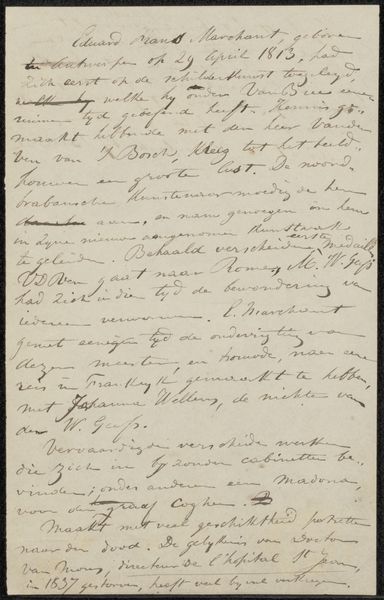 Eduard Frans Marchant, geboren
te Antwerpen op 29 April 1813, had
zich eerst op de schilderkunst toegelegd,
welke hy onder Van Bree eenen
ruimen tyd geoefend heeft. Kennis ge-
maakt hebbende met den heer Vander
Ven van 's Bosch, kreeg tot het beeld-
houwen een groote lust. De noord-
brabansche Kunstenaar moedigde hem
aan, en nam genoegen om hem
in zyne nieuw aangenomen Kunsttak
te geleiden. Behaald verscheiden eerste medaillen
VDVen gaat naar Rome, M. W. Geefs
had zich in die tyd de bewondering van
iedereen verworven. E. Marchant
geniet eenigen tyd de onderrigting van
dezen meester, en trouwde, naar eene
reis in Frankryk gemaakt te hebben,
met Johanna Wellens, de nichte van
den W. Geefs.
Vervaardigde verscheide werken
die zich in byzondere cabinetten be-
vinden; onder anderen een Madona,
voor de graaf Coghen.
Maakt met veel geschiktheid portretten
naar den dood. De gelykenis van Doctor
van Mons, directeur de l'hôpital St Jean,
in 1837 gestorven, heeft veel byval verkregen.